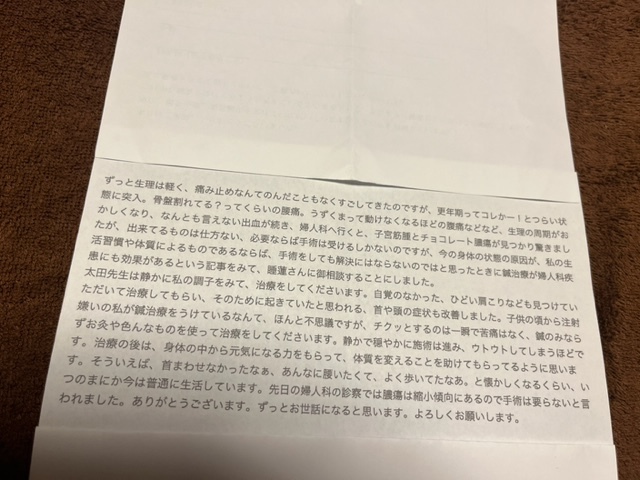 ずっと生理は軽く、痛み止めなんてのんだこともなくすごしてきたのですが、更年期ってコレかー！とつらい状
態に突入。骨盤割れてる？ってくらいの腰痛。うずくまって動けなくなるほどの腹痛などなど、生理の周期がお
かしくなり、なんとも言えない出血が続き、婦人科へ行くと、子宮筋腫とチョコレート膿瘍が見つかり驚きまし
たが、出来てるものは仕方ない、必要ならば手術は受けるしかないのですが、今の身体の状態の原因が、私の生
活習慣や体質によるものであるならば、手術をしても解決にはならないのではと思ったときに鍼治療が婦人科疾
患にも効果があるという記事をみて、睡蓮さんに御相談することにしました。
太田先生は静かに私の調子をみて、治療をしてくださいます。自覚のなかった、ひどい肩こりなども見つけてい
ただいて治療してもらい、そのために起きていたと思われる、首や頭の症状も改善しました。子供の頃から注射
嫌いの私が鍼治療をうけているなんて、ほんと不思議ですが、チクッとするのは一瞬で苦痛はなく、鍼のみなら
ずお灸や色んなものを使って治療をしてくださいます。静かで穏やかに施術は進み、ウトウトしてしまうほどで
す。治療の後は、身体の中から元気になる力をもらって、体質を変えることを助けてもらってるように思いま
す。そういえば、首まわせなかったなぁ、あんなに腰いたくて、よく歩いてたなあ。と懐かしくなるくらい、い
つのまにか今は普通に生活しています。先日の婦人科の診察では膿瘍は縮小傾向にあるので手術は要らないと言
われました。ありがとうございます。ずっとお世話になると思います。よろしくお願いします。